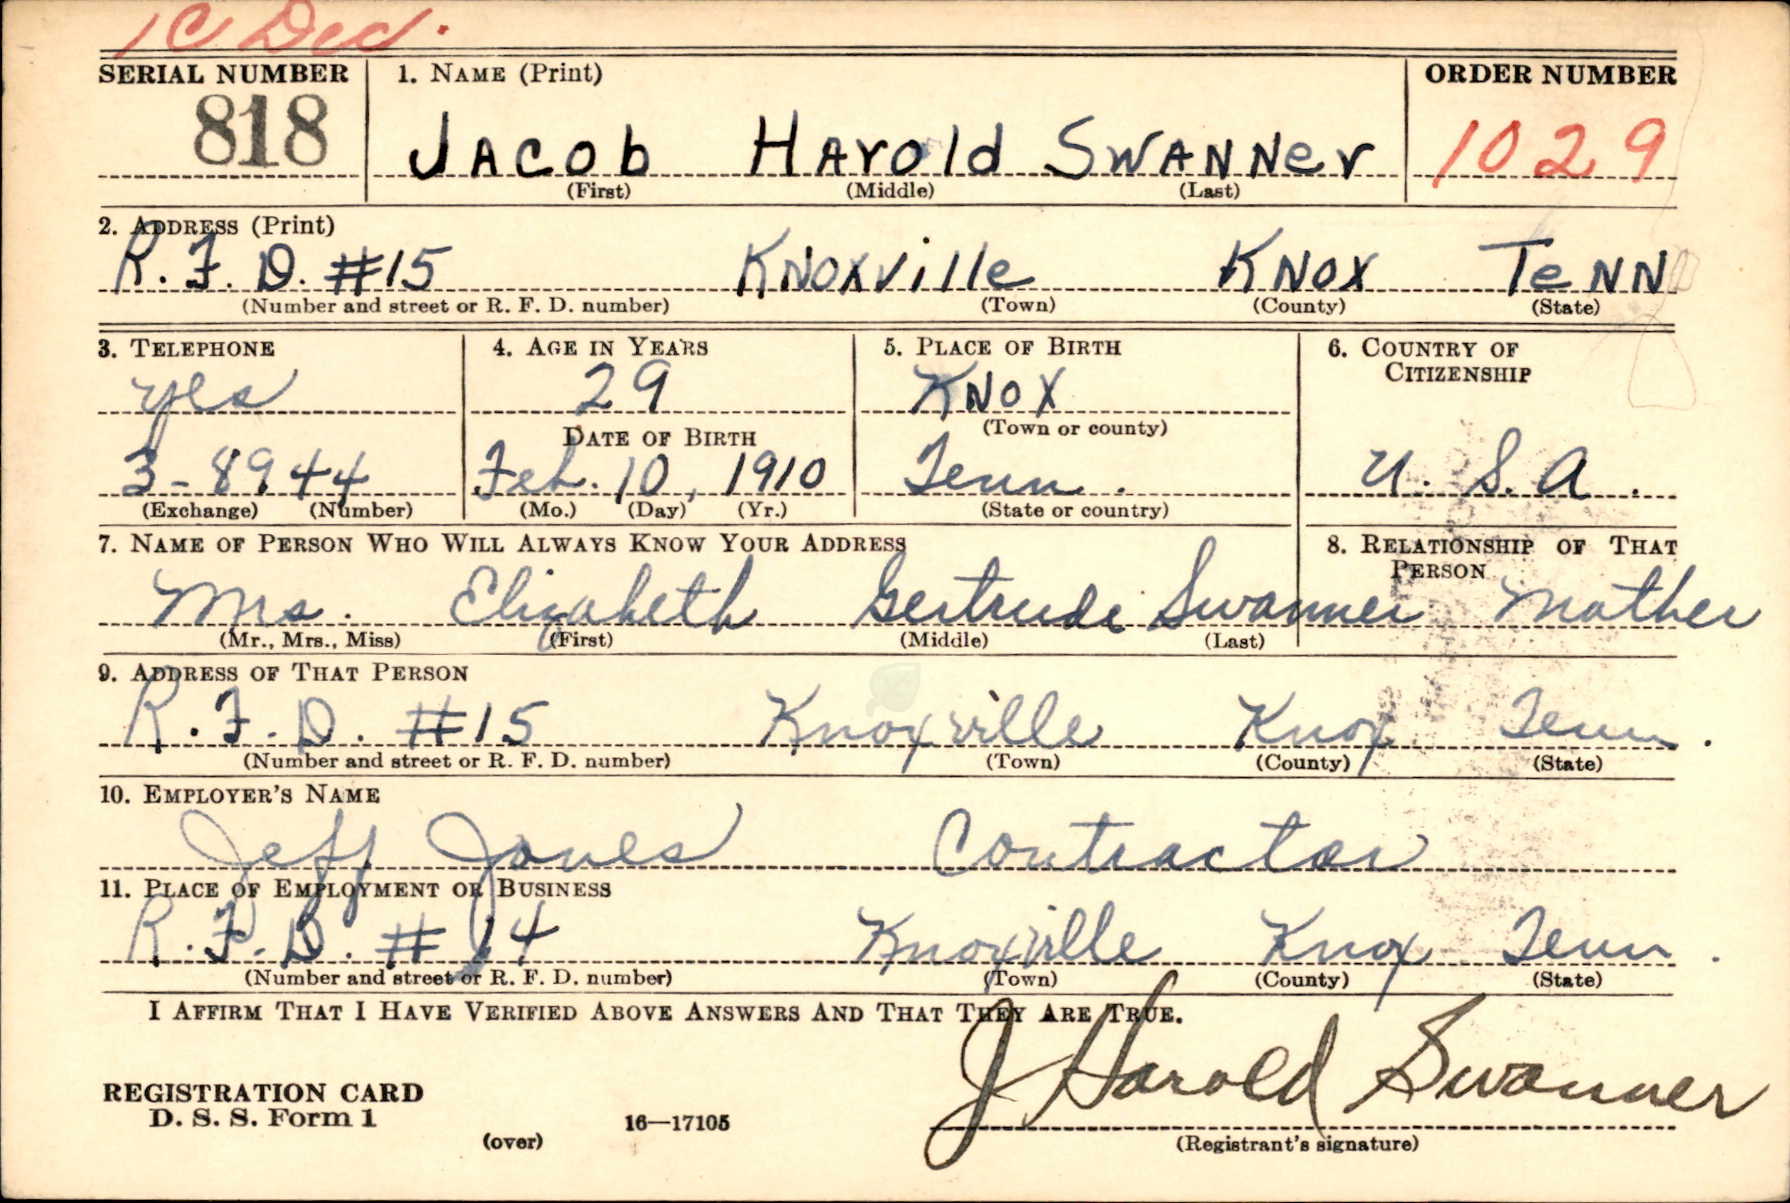 1C Dec.
SERIAL NUMBER 1. NAME (Print) ORDER NUMBER
818 JAcob HArold SWANNer 1029
(First) (Middle) (Last)
2. ADDRESS (Print)
R.F.D. #15 KNoxville KNox TeNN
(Number and street or R. F. D. number) (Town) (County) (State)
3. TELEPHONE 4. AGE IN YEARS 5. PLACE OF BIRTH 6. COUNTRY OF CITIZENSHIP
yes 29 KNox
DATE OF BIRTH (Town or county)
3-8944 Feb. 10, 1910 Tenn. U.S.A.
(Exchange) (Number) (Mo.) (Day) (Yr.) (State or country)
7. NAME OF PERSON WHO WILL ALWAYS KNOW YOUR ADDRESS 8. RELATIONSHIP OF THAT PERSON
Mrs. Elizabeth Gertrude Swanner Mother
(Mr., Mrs., Miss) (First) (Middle) (Last)
9. ADDRESS OF THAT PERSON
R.F.D. #15 Knoxville Knox Tenn.
(Number and street or R. F. D. number) (Town) (County) (State)
10. EMPLOYER'S NAME
Jeff Jones Contractor
11. PLACE OF EMPLOYMENT OR BUSINESS
R.F.D. #14 Knoxville Knox Tenn.
(Number and street or R. F. D. number) (Town) (County) (State)
I AFFIRM THAT I HAVE VERIFIED ABOVE ANSWERS AND THAT THEY ARE TRUE.
J Harold Swanner
REGISTRATION CARD
D. S. S. Form 1 16—17105
(over) (Registrant's signature)